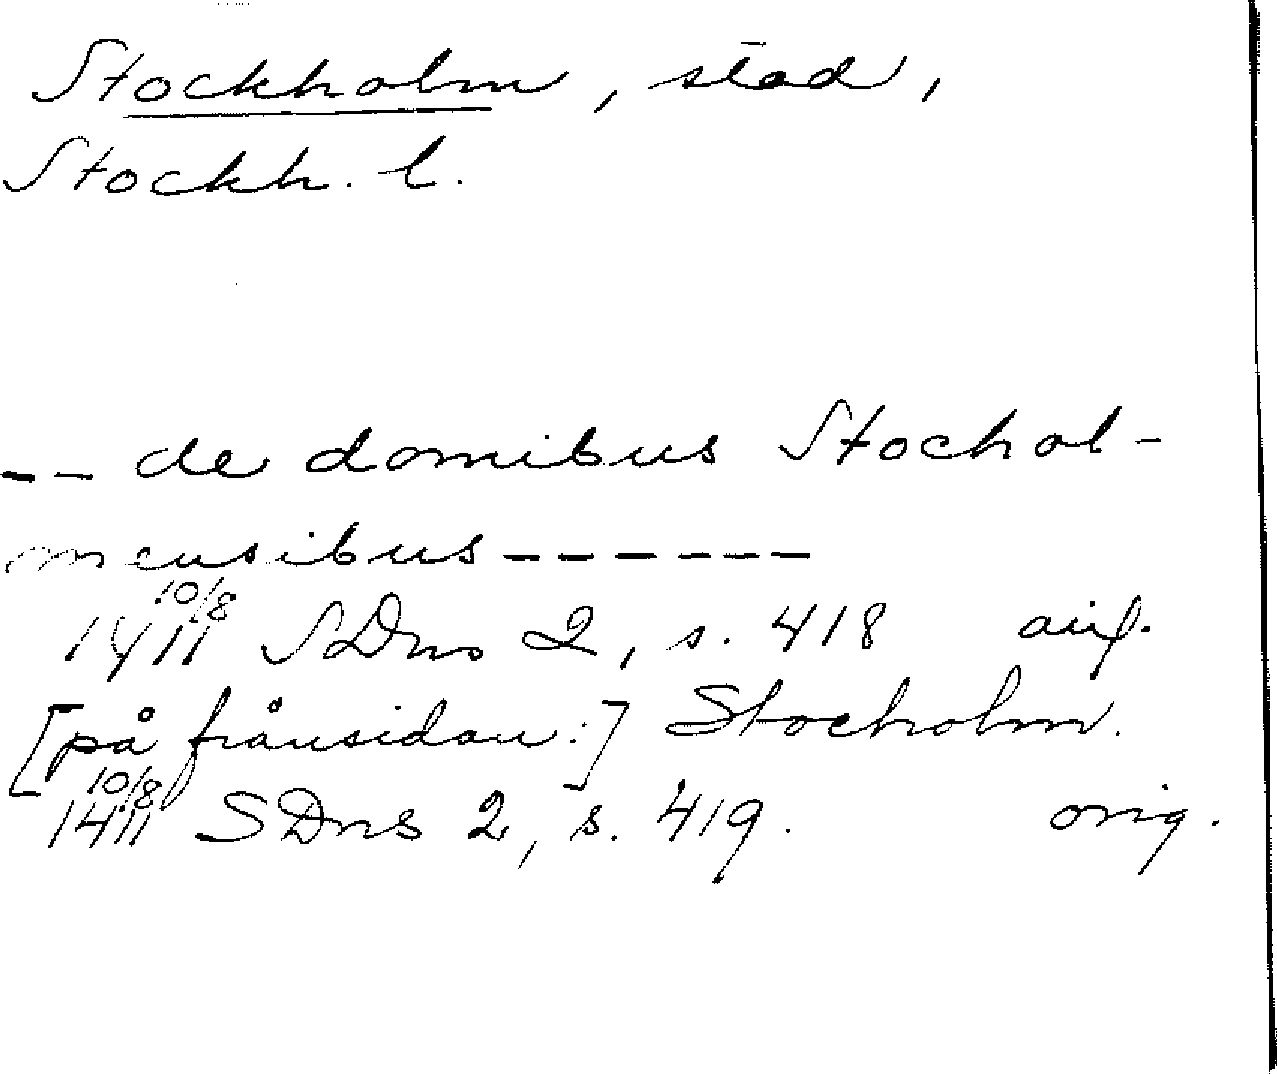 Stockholm, stad,
Stockh. l.
-- de domibus Stochol-
mensibus ------
1411 10/8 SDns 2, s. 418 orig.
[på frånsidan:] Stocholm.
1411 10/8 SDns 2, s. 419. orig.